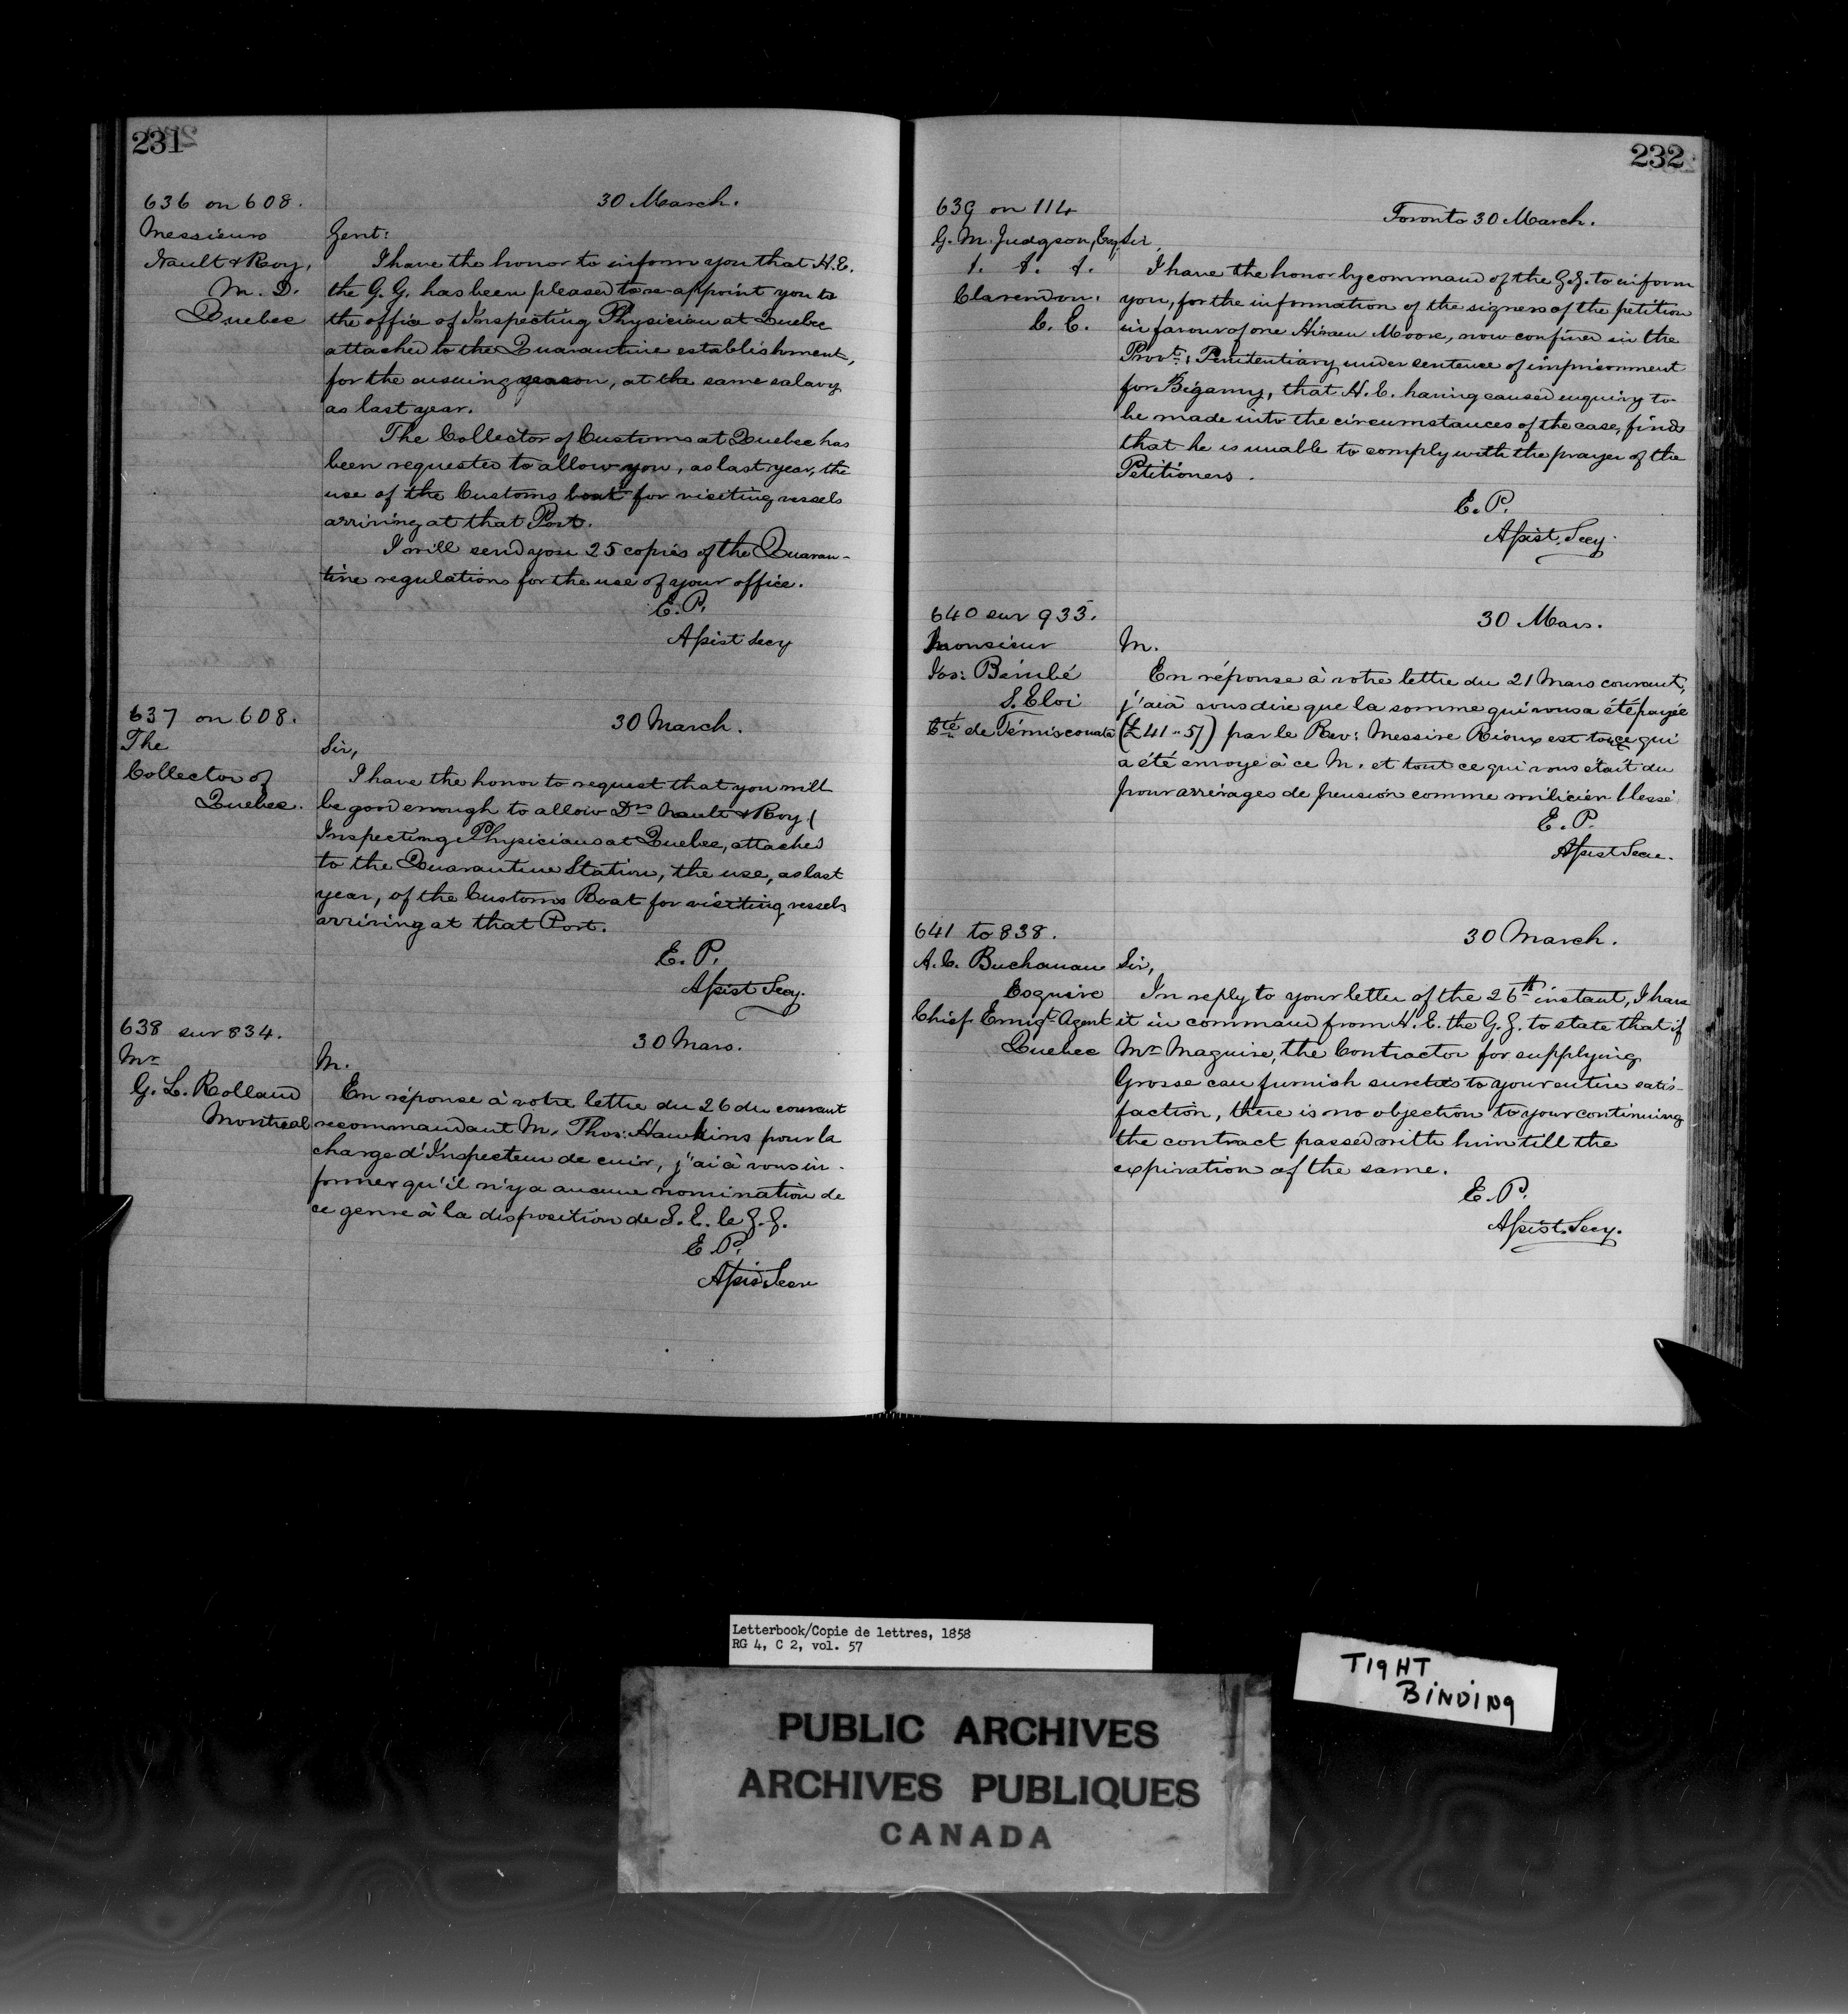 231
636 on 608.
30 March.
Messieurs
Nault & Roy,
M. D.
Quebec
Gent:
I have the honor to inform you that H.E.
the G. G. has been pleased to re-appoint you to
the office of Inspecting Physician at Quebec
attached to the Quarantine establishment,
for the ensuing season, at the same salary
as last year.
The Collector of Customs at Quebec has
been requested to allow you, as last year, the
use of the Customs boat for visiting vessels
arriving at that Port.
I will send you 25 copies of the Quaran-
tine regulations for the use of your office.
E. P.
Assist Secy
637 on 608.
30 March.
The
Collector of
Quebec.
Sir,
I have the honor to request that you will
be good enough to allow Drs Nault & Roy (
Inspecting Physicians at Quebec, attached
to the Quarantine Station, the use, as last
year, of the Customs Boat for visiting vessels
arriving at that Port.
E. P.
Assist Secy.
638 sur 834.
30 Mars.
Mr
G. L. Rolland
Montreal
M.
En réponse à votre lettre du 26 du courant
recommandant M. Thos: Hawkins pour la
charge d'Inspecteur de cuir, j'ai à vous in-
former qu'il n'y a aucune nomination de
ce genre à la disposition de S. E. le G. G.
E. P.
Assis Secre
232
639 on 114
Toronto 30 March.
G. M. Judgson, Esq,
Clarendon.
C. E.
Sir,
I have the honor by command of the G.G. to inform
you, for the information of the signers of the petition
in favour of one Hiram Moore, now confined in the
Provl: Penitentiary under sentence of imprisonment
for Bigamy, that H. E. having caused enquiry to
be made into the circumstances of the case, finds
that he is unable to comply with the prayer of the
Petitioners.
E. P.
Assist. Secy.
640 sur 933.
30 Mars.
Monsieur
Jos: Bérubé
S. Eloi
Cté de Témiscouata
M.
En réponse à votre lettre du 21 Mars courant,
j'ai à vous dire que la somme qui vous a été payée
(£41 " 5/) par le Rev: Messire Rioux est tout ce qui
a été envoyé à ce M. et tout ce qui vous était du
pour arrérages de pension comme milicien blessé.
E. P.
Assist Secre.
641 to 838.
30 March.
A. C. Buchanan
Esquire
Chief Emigt Agent
Quebec
Sir,
In reply to your letter of the 26th instant, I have
it in command from H. E. the G. G. to state that if
Mr Maguire, the Contractor for supplying
Grosse can furnish sureties to your entire satis-
faction, there is no objection to your continuing
the contract passed with him till the
expiration of the same.
E. P.
Assist. Secy.
Letterbook/Copie de lettres, 1858
RG 4, C 2, vol. 57
TIGHT
BINDING
PUBLIC ARCHIVES
ARCHIVES PUBLIQUES
CANADA